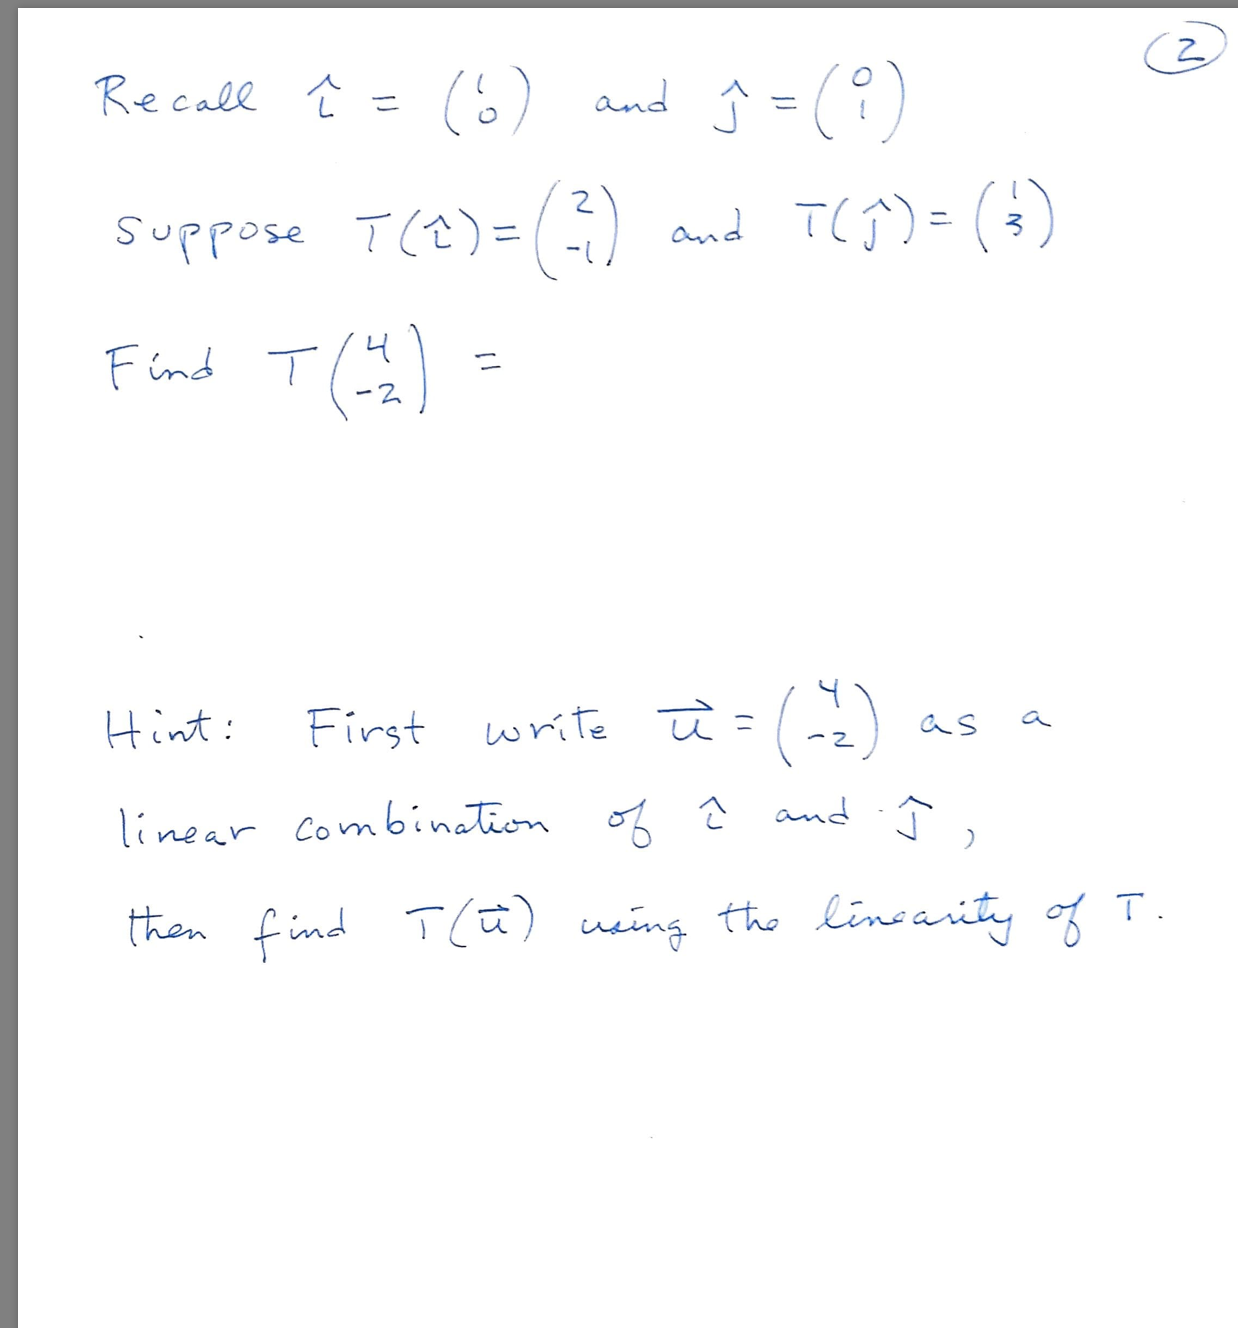 2
Recall î = (1 0) and ĵ = (0 1)
Suppose T(î) = (2 -1) and T(ĵ) = (1 3)
Find T(4 -2) =
Hint: First write u⃗ = (4 -2) as a
linear combination of î and ĵ,
then find T(u⃗) using the linearity of T.